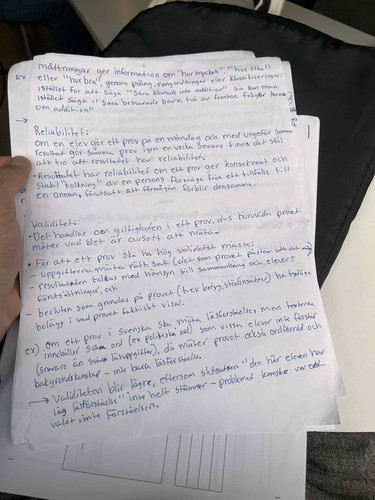 mätningar ger information om "hur mycket" "hur ofta"
ex eller "hur bra", genom poäng, rangordningar eller klassificeringar.
istället för att säga "Sara klarade inte addition" så kan man
istället säga "Sara besvarade bara två av femton frågor
om addition"
Reliabilitet:
om en elev gör ett prov på en måndag och med ungefär samma
resultat gör samma prov igen en vecka senare finns det skäl
att tro att resultatet har reliabilitet.
- Resultatet har reliabilitet om ett prov ger konsekvent och
stabil "tolkning" av en persons förmåga från ett tillfälle till
en annan, förutsatt att förmågan förblir densamma.
Validitet:
- Det handlar om giltigheten i ett prov, dvs huruvida provet
mäter vad det är avsett att mäta.
• För att ett prov ska ha hög validitet måste:
- uppgifterna mäta rätt sak (det som provet påstår
- resultaten tolkas med hänsyn till sammanhang och elevers
förutsättningar, och
- beslut som grundas på provet (t.ex betyg, stödinsatser) ha tydliga
belägg i vad provet faktiskt visar.
ex) Om ett prov i svenska ska mäta läsförståelse men texterna
innehåller ord (ex politiska ord) som vissa elever inte förstår
(snarare än svåra läsuppgifter), då mäter provet också ordförråd och
bakgrundskunskap - inte bara läsförståelse.
→ Validiteten blir lägre, eftersom slutsatsen "den här eleven har
låg läsförståelse" inte helt stämmer - problemet kanske var ord
valet, inte förståelsen.